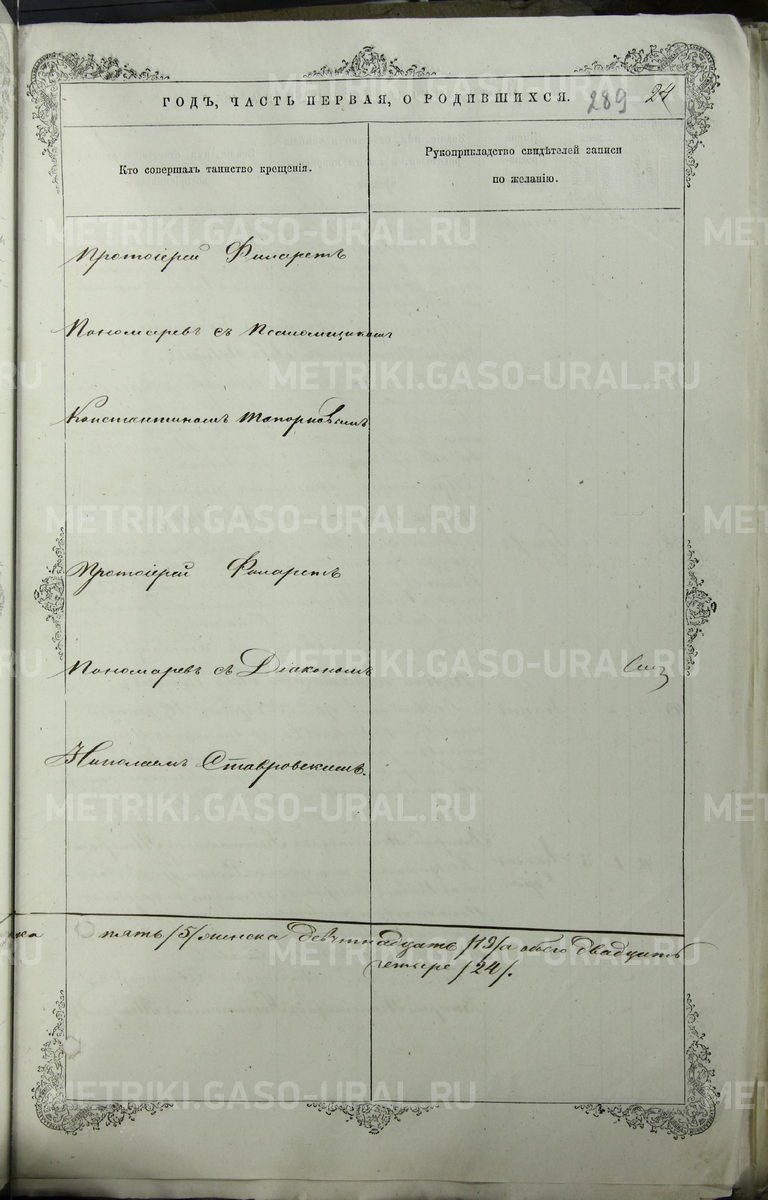 ГОДЪ, ЧАСТЬ ПЕРВАЯ, О РОДИВШИХСЯ. 289 24
Кто совершалъ таинство крещенія.
Рукоприкладство свидѣтелей записи
по желанію.
Протоіерей Филаретъ
Пономаревъ съ Псаломщикомъ
Константиномъ Топорковымъ.
Протоіерей Филаретъ
Пономаревъ съ Діакономъ
Николаемъ Ставровскимъ.
пять /5/ женска девятнадцать /19/ а обоего двадцать
четыре /24/.
METRIKI.GASO-URAL.RU